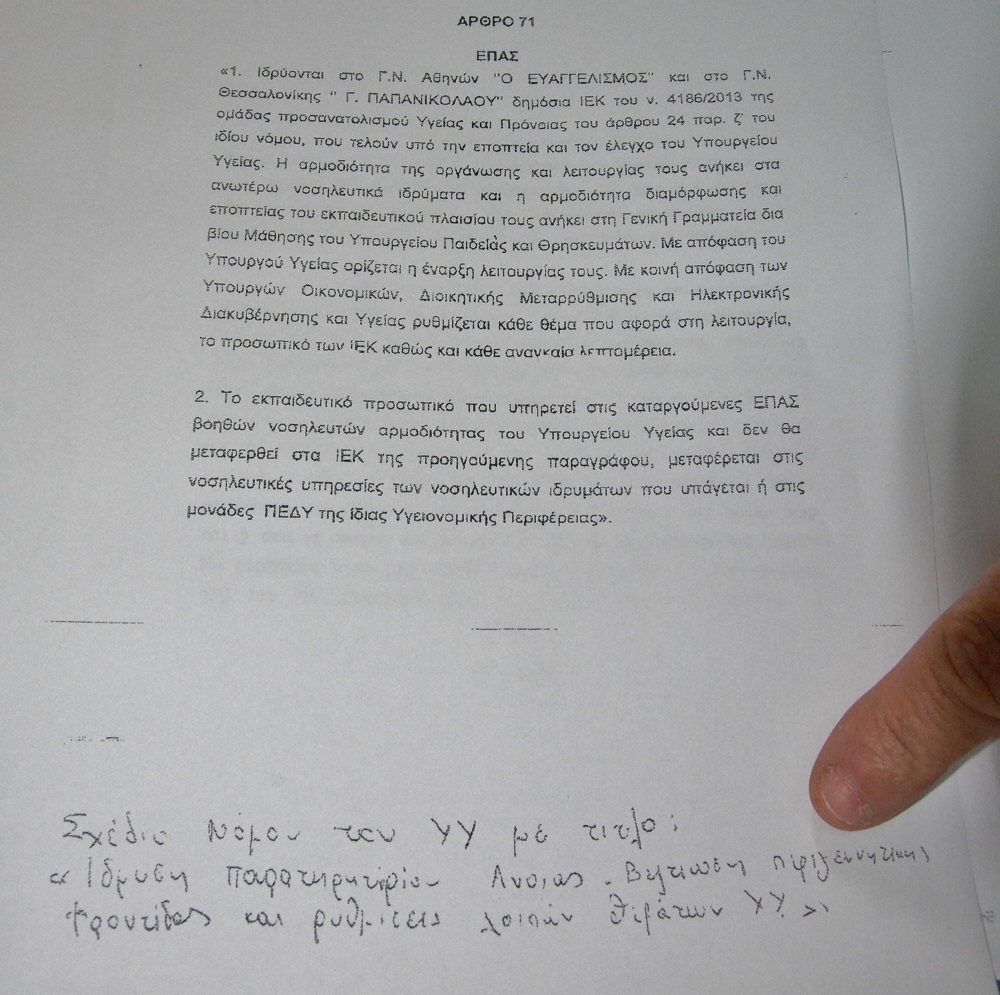 ΑΡΘΡΟ 71
ΕΠΑΣ
«1. Ιδρύονται στο Γ.Ν. Αθηνών "Ο ΕΥΑΓΓΕΛΙΣΜΟΣ" και στο Γ.Ν.
Θεσσαλονίκης " Γ. ΠΑΠΑΝΙΚΟΛΑΟΥ" δημόσια ΙΕΚ του ν. 4186/2013 της
ομάδας προσανατολισμού Υγείας και Πρόνοιας του άρθρου 24 παρ. ζ' του
ιδίου νόμου, που τελούν υπό την εποπτεία και τον έλεγχο του Υπουργείου
Υγείας. Η αρμοδιότητα της οργάνωσης και λειτουργίας τους ανήκει στα
ανωτέρω νοσηλευτικά ιδρύματα και η αρμοδιότητα διαμόρφωσης και
εποπτείας του εκπαιδευτικού πλαισίου τους ανήκει στη Γενική Γραμματεία δια
βίου Μάθησης του Υπουργείου Παιδείας και Θρησκευμάτων. Με απόφαση του
Υπουργού Υγείας ορίζεται η έναρξη λειτουργίας τους. Με κοινή απόφαση των
Υπουργών Οικονομικών, Διοικητικής Μεταρρύθμισης και Ηλεκτρονικής
Διακυβέρνησης και Υγείας ρυθμίζεται κάθε θέμα που αφορά στη λειτουργία,
το προσωπικό των ΙΕΚ καθώς και κάθε αναγκαία λεπτομέρεια.
2. Το εκπαιδευτικό προσωπικό που υπηρετεί στις καταργούμενες ΕΠΑΣ
βοηθών νοσηλευτών αρμοδιότητας του Υπουργείου Υγείας και δεν θα
μεταφερθεί στα ΙΕΚ της προηγούμενης παραγράφου, μεταφέρεται στις
νοσηλευτικές υπηρεσίες των νοσηλευτικών ιδρυμάτων που υπάγεται ή στις
μονάδες ΠΕΔΥ της ίδιας Υγειονομικής Περιφέρειας».
Σχέδιο Νόμου του ΥΥ με τιτλο:
«Ιδρυση Παρατηρητηρίου Ανοιας. Βελτιωση περιγεννητικης
Φροντίδας και ρυθμισεις λοιπών θεμάτων ΥΥ »